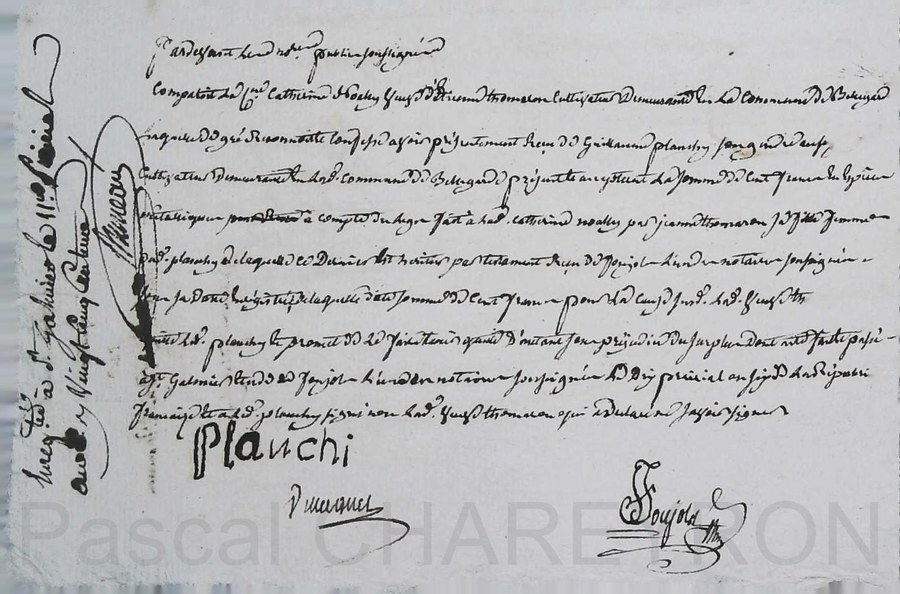 Pardevant les nores publics soussignés
Comparut la Cne Catherine Noally veuve d'Etienne thomaron Cultivateur Demeurant en la Commune de Bellegard
laquelle de gré Reconnoit et Confesse avoir présentement Reçu de Guillaume planchy son gendre aussy
Cultivateur Demeurant en lad. commune de Bellegarde présent et acceptant la somme de Cent francs en Espèces
à compte du legs fait à lad. Catherine noally par jeanne thomaron sa fille femme
aud. planchy de laquelle ce Dernier est héritier par testament Reçu de Joujols l'un de notaires soussignés
sous sa date Enregistré de laquelle dite somme de Cent francs pour la cause susd. lad. veuve th
quitte led. planchy et promet de le faire tenir quitte D'autant sans préjudice du surplus dont acte fait et passé
à St Galmier Etude de Joujols l'un des notaires soussignés le Dix prairial an six de la République
française et a led. planchy signé non lad. veuve thomaron qui a déclaré ne savoir signer
Planchi
Joujols
Enregté à St Galmier le 11 prairial
an 6 Vingt Cinq Centimes
Pascal CHARETRON